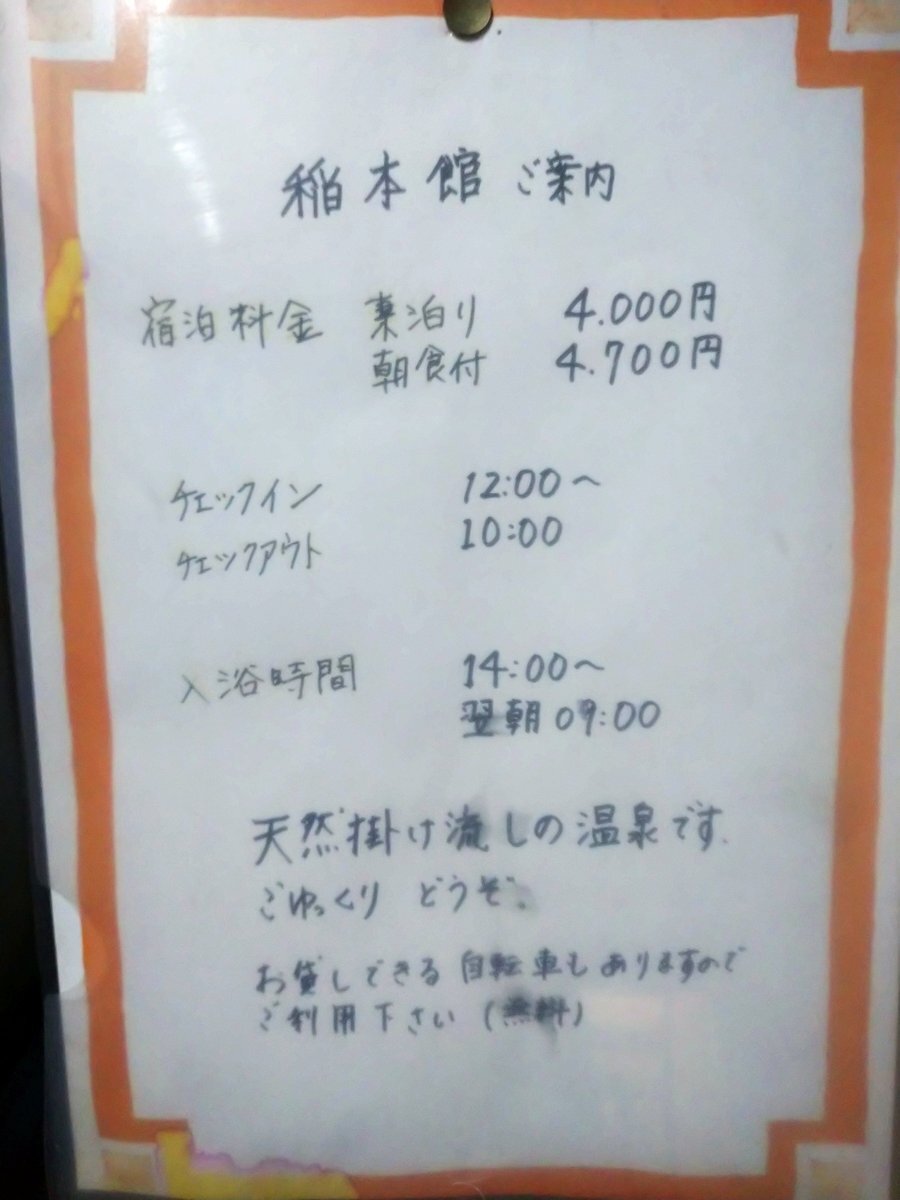 稲本館 ご案内
宿泊料金 素泊り 4.000円
朝食付 4.700円
チェックイン 12:00～
チェックアウト 10:00
入浴時間 14:00～
翌朝 09:00
天然掛け流しの温泉です.
ごゆっくり どうぞ.
お貸しできる 自転車も ありますので
ご利用下さい (無料)